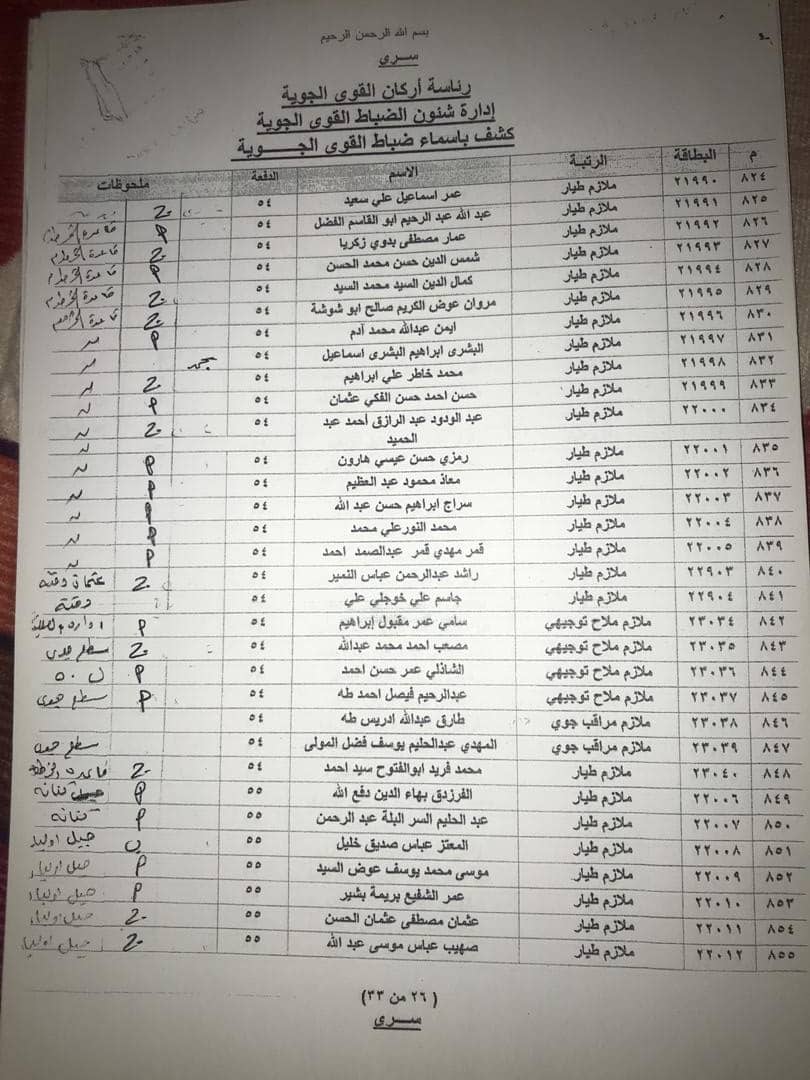 بسم الله الرحمن الرحيم
سرى
رئاسة أركان القوى الجوية
إدارة شئون الضباط القوى الجوية
كشف باسماء ضباط القوى الجوية
م البطاقة الرتبة الاسم الدفعة ملحوظات
٨٢٤ ٢١٩٩٠ ملازم طيار عمر اسماعيل علي سعيد ٥٤
٨٢٥ ٢١٩٩١ ملازم طيار عبد الله عبد الرحيم ابو القاسم الفضل ٥٤
٨٢٦ ٢١٩٩٢ ملازم طيار عمار مصطفى بدوي زكريا ٥٤
٨٢٧ ٢١٩٩٣ ملازم طيار شمس الدين حسن محمد الحسن ٥٤
٨٢٨ ٢١٩٩٤ ملازم طيار كمال الدين السيد محمد السيد ٥٤
٨٢٩ ٢١٩٩٥ ملازم طيار مروان عوض الكريم صالح ابو شوشة ٥٤
٨٣٠ ٢١٩٩٦ ملازم طيار ايمن عبدالله محمد آدم ٥٤
٨٣١ ٢١٩٩٧ ملازم طيار البشرى ابراهيم البشرى اسماعيل ٥٤
٨٣٢ ٢١٩٩٨ ملازم طيار محمد خاطر علي ابراهيم ٥٤
٨٣٣ ٢١٩٩٩ ملازم طيار حسن احمد حسن الفكي عثمان ٥٤
٨٣٤ ٢٢٠٠٠ ملازم طيار عبد الودود عبد الرازق أحمد عبد ٥٤
الحميد
٨٣٥ ٢٢٠٠١ ملازم طيار رمزي حسن عيسي هارون ٥٤
٨٣٦ ٢٢٠٠٢ ملازم طيار معاذ محمود عبد العظيم ٥٤
٨٣٧ ٢٢٠٠٣ ملازم طيار سراج ابراهيم حسن عبد الله ٥٤
٨٣٨ ٢٢٠٠٤ ملازم طيار محمد النور علي محمد ٥٤
٨٣٩ ٢٢٠٠٥ ملازم طيار قمر مهدي قمر عبدالصمد احمد ٥٤
٨٤٠ ٢٢٩٠٣ ملازم طيار راشد عبدالرحمن عباس النمير ٥٤ عثمان دقنه
٨٤١ ٢٢٩٠٤ ملازم طيار جاسم علي خوجلي علي ٥٤ دقنة
٨٤٢ ٢٣٠٣٤ ملازم ملاح توجيهي سامي عمر مقبول إبراهيم ٥٤
٨٤٣ ٢٣٠٣٥ ملازم ملاح توجيهي مصعب احمد محمد عبدالله ٥٤
٨٤٤ ٢٣٠٣٦ ملازم ملاح توجيهي الشاذلي عمر حسن احمد ٥٤
٨٤٥ ٢٣٠٣٧ ملازم ملاح توجيهي عبدالرحيم فيصل احمد طه ٥٤
٨٤٦ ٢٣٠٣٨ ملازم مراقب جوي طارق عبدالله ادريس طه ٥٤
٨٤٧ ٢٣٠٣٩ ملازم مراقب جوي المهدي عبدالحليم يوسف فضل المولى ٥٤
٨٤٨ ٢٣٠٤٠ ملازم طيار محمد فريد ابوالفتوح سيد احمد ٥٤
٨٤٩ ٢٢٠٠٦ ملازم طيار الفرزدق بهاء الدين دفع الله ٥٥ كنانه
٨٥٠ ٢٢٠٠٧ ملازم طيار عبد الحليم السر البلة عبد الرحمن ٥٥ كنانه
٨٥١ ٢٢٠٠٨ ملازم طيار المعتز عباس صديق خليل ٥٥ جبل اولياء
٨٥٢ ٢٢٠٠٩ ملازم طيار موسى محمد يوسف عوض السيد ٥٥ جبل اولياء
٨٥٣ ٢٢٠١٠ ملازم طيار عمر الشفيع بريمة بشير ٥٥ جبل اولياء
٨٥٤ ٢٢٠١١ ملازم طيار عثمان مصطفى عثمان الحسن ٥٥ جبل اولياء
٨٥٥ ٢٢٠١٢ ملازم طيار صهيب عباس موسى عبد الله ٥٥ جبل اولياء
(٢٦ من ٣٣)
سرى